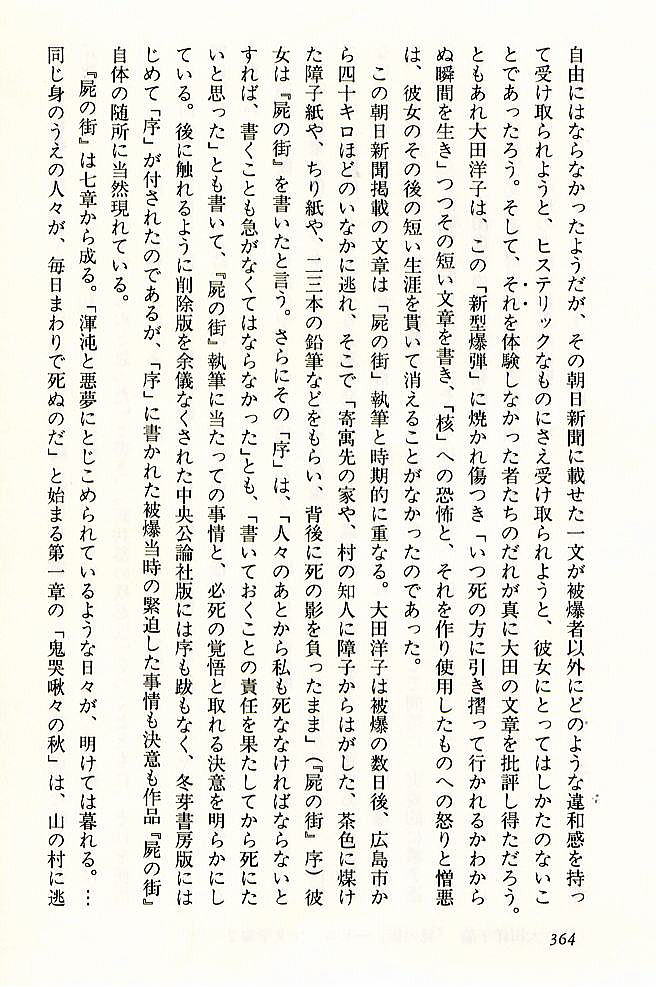 自由にはならなかったようだが、その朝日新聞に載せた一文が被爆者以外にどのような違和感を持っ
て受け取られようと、ヒステリックなものにさえ受け取られようと、彼女にとってはしかたのないこ
とであったろう。そして、それを体験しなかった者たちのだれが真に大田の文章を批評し得ただろう。
ともあれ大田洋子は、この「新型爆弾」に焼かれ傷つき「いつ死の方に引き摺って行かれるかわから
ぬ瞬間を生き」つつその短い文章を書き、「核」への恐怖と、それを作り使用したものへの怒りと憎悪
は、彼女のその後の短い生涯を貫いて消えることがなかったのであった。
この朝日新聞掲載の文章は「屍の街」執筆と時期的に重なる。大田洋子は被爆の数日後、広島市か
ら四十キロほどのいなかに逃れ、そこで「寄寓先の家や、村の知人に障子からはがした、茶色に煤け
た障子紙や、ちり紙や、二三本の鉛筆などをもらい、背後に死の影を負ったまま」（『屍の街』序）彼
女は『屍の街』を書いたと言う。さらにその「序」は、「人々のあとから私も死ななければならないと
すれば、書くことも急がなくてはならなかった」とも、「書いておくことの責任を果たしてから死にた
いと思った」とも書いて、『屍の街』執筆に当たっての事情と、必死の覚悟と取れる決意を明らかにし
ている。後に触れるように削除版を余儀なくされた中央公論社版には序も跋もなく、冬芽書房版には
じめて「序」が付されたのであるが、「序」に書かれた被爆当時の緊迫した事情も決意も作品『屍の街』
自体の随所に当然現れている。
『屍の街』は七章から成る。「渾沌と悪夢にとじこめられているような日々が、明けては暮れる。…
同じ身のうえの人々が、毎日まわりで死ぬのだ」と始まる第一章の「鬼哭啾々の秋」は、山の村に逃
364